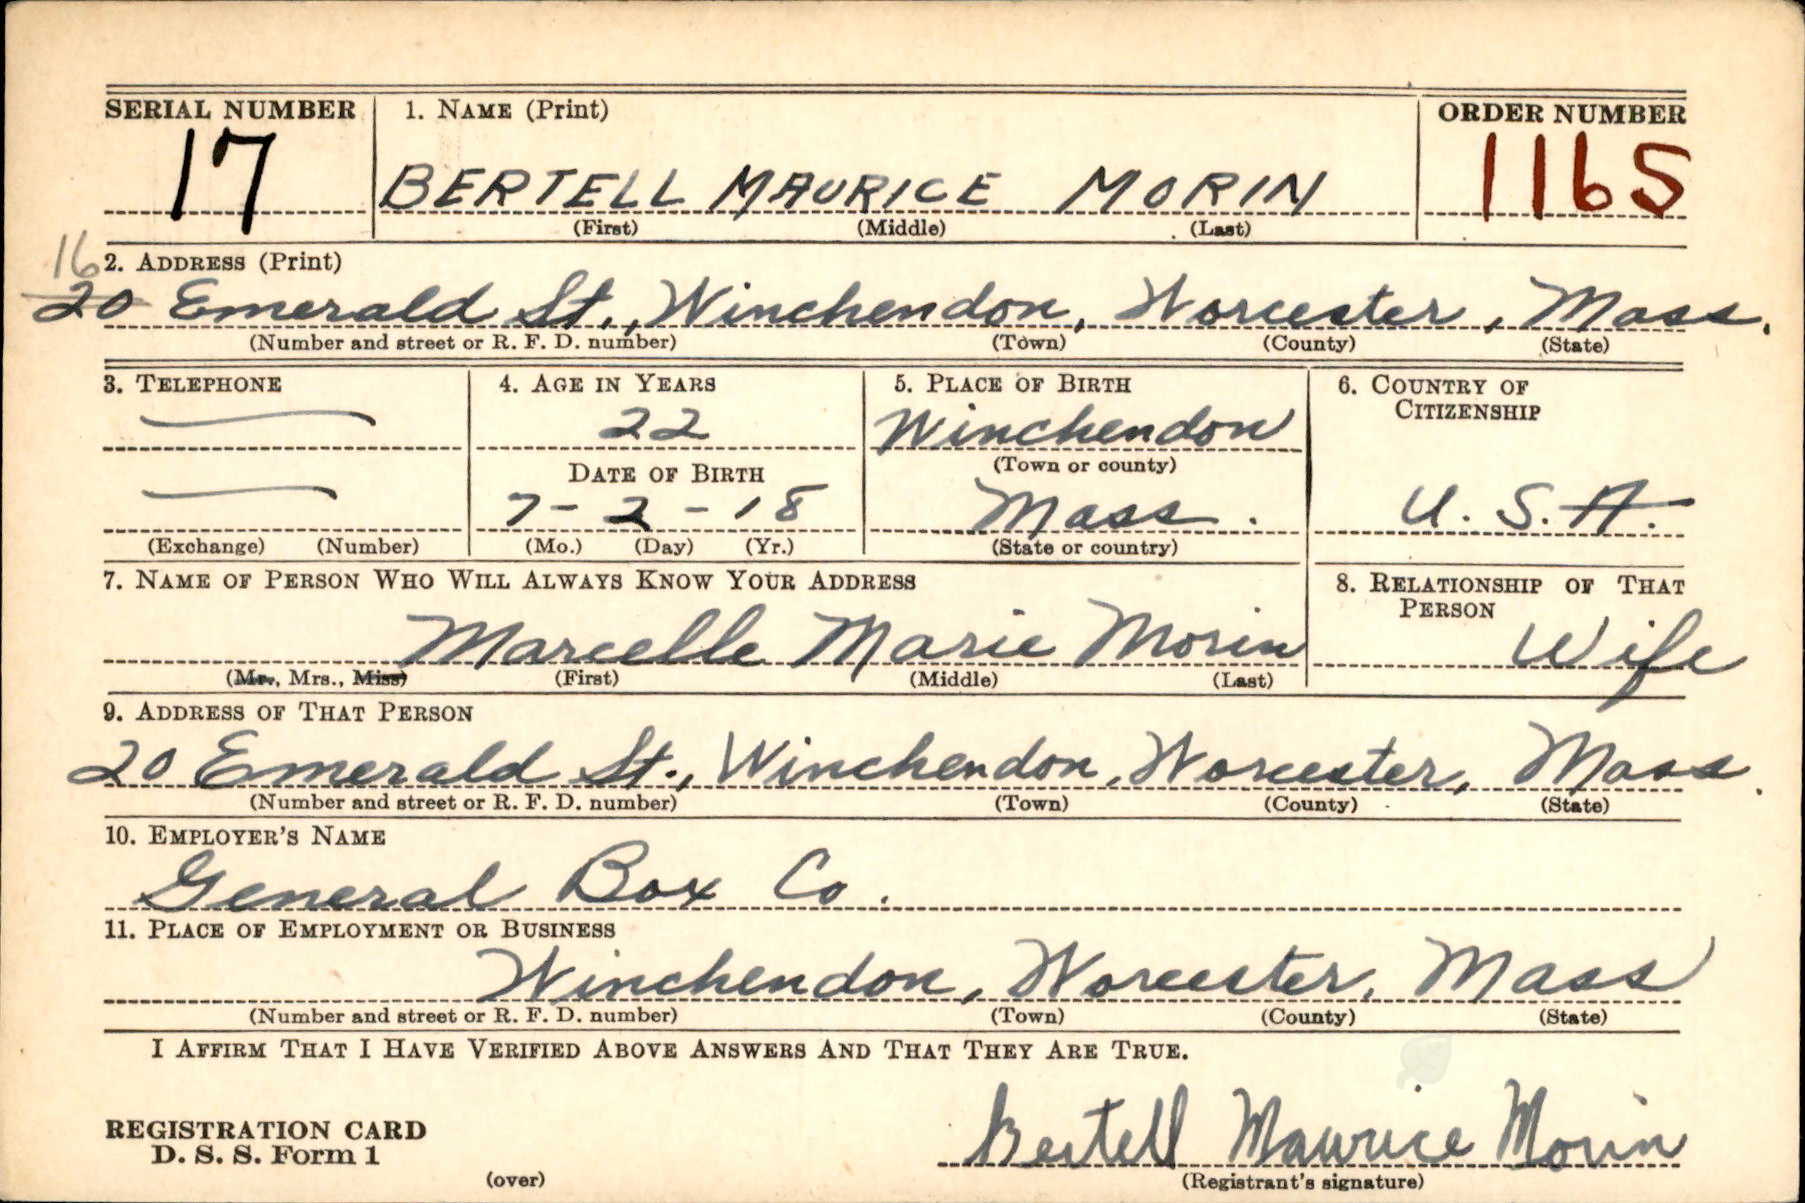 SERIAL NUMBER 1. NAME (Print) ORDER NUMBER
17 BERTELL MAURICE MORIN 1165
(First) (Middle) (Last)
16 2. ADDRESS (Print)
20 Emerald St., Winchendon, Worcester, Mass.
(Number and street or R. F. D. number) (Town) (County) (State)
3. TELEPHONE 4. AGE IN YEARS 5. PLACE OF BIRTH 6. COUNTRY OF
CITIZENSHIP
22 Winchendon
DATE OF BIRTH (Town or county)
7-2-18 Mass. U. S. A.
(Exchange) (Number) (Mo.) (Day) (Yr.) (State or country)
7. NAME OF PERSON WHO WILL ALWAYS KNOW YOUR ADDRESS 8. RELATIONSHIP OF THAT
PERSON
Marcelle Marie Morin Wife
(Mr., Mrs., Miss) (First) (Middle) (Last)
9. ADDRESS OF THAT PERSON
20 Emerald St., Winchendon, Worcester, Mass.
(Number and street or R. F. D. number) (Town) (County) (State)
10. EMPLOYER'S NAME
General Box Co.
11. PLACE OF EMPLOYMENT OR BUSINESS
Winchendon, Worcester, Mass
(Number and street or R. F. D. number) (Town) (County) (State)
I AFFIRM THAT I HAVE VERIFIED ABOVE ANSWERS AND THAT THEY ARE TRUE.
REGISTRATION CARD
D. S. S. Form 1
Bertell Maurice Morin
(over) (Registrant's signature)